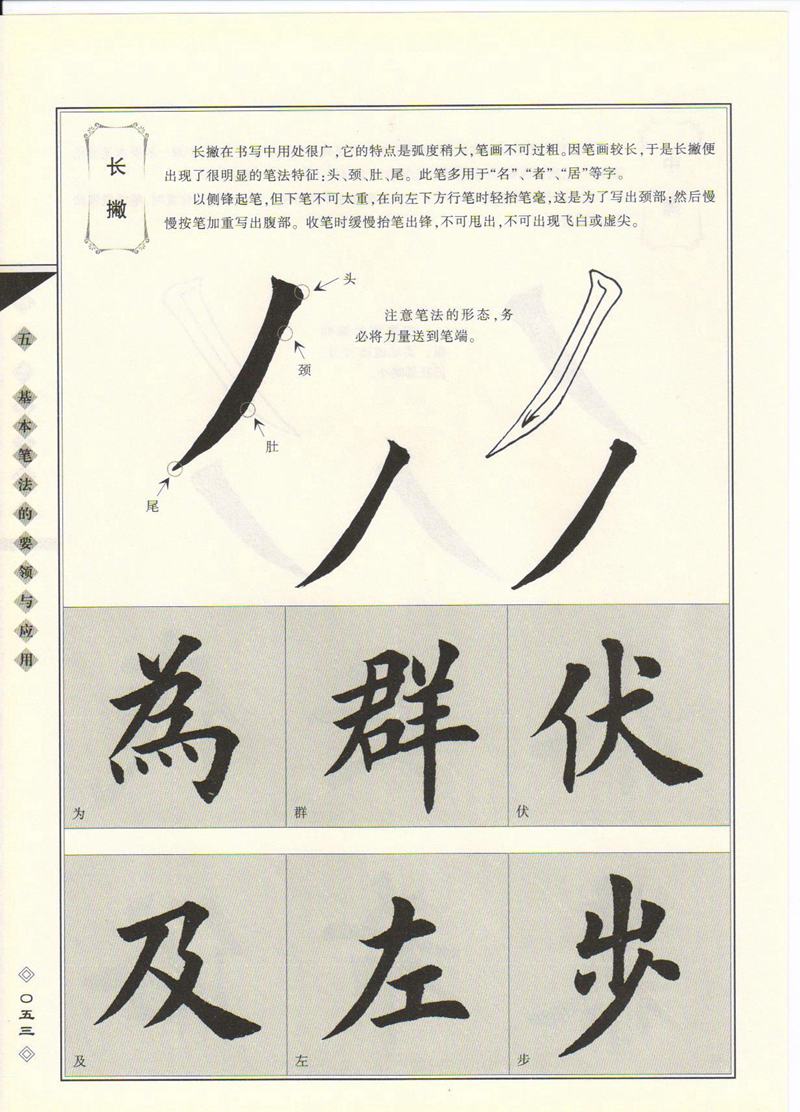 长撇
长撇在书写中用处很广，它的特点是弧度稍大，笔画不可过粗。因笔画较长，于是长撇便
出现了很明显的笔法特征：头、颈、肚、尾。此笔多用于“名”、“者”、“居”等字。
以侧锋起笔，但下笔不可太重，在向左下方行笔时轻抬笔毫，这是为了写出颈部；然后慢
慢按笔加重写出腹部。收笔时缓慢抬笔出锋，不可甩出，不可出现飞白或虚尖。
头
注意笔法的形态，务
必将力量送到笔端。
颈
肚
尾
五 基本笔法的要领与应用
為 群 伏
为 群 伏
及 左 步
及 左 步
〇五三